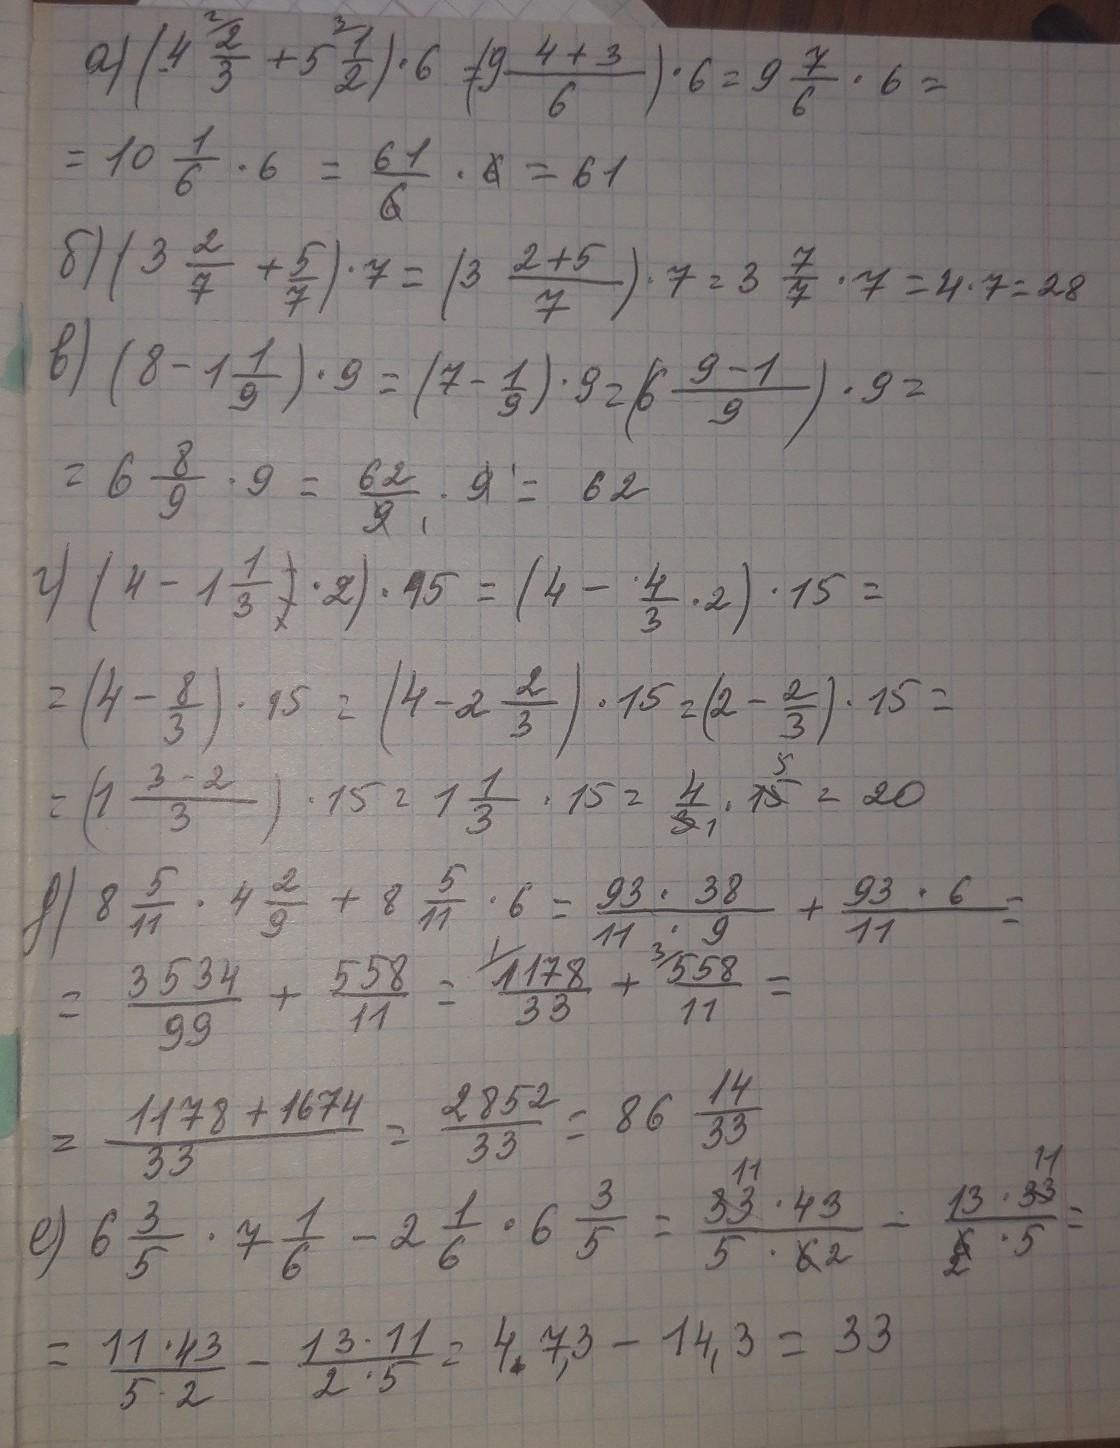 а) (4 2/3 + 5 1/2) · 6 = (9 (4+3)/6) · 6 = 9 7/6 · 6 =
= 10 1/6 · 6 = 61/6 · 6 = 61
б) (3 2/7 + 5/7) · 7 = (3 (2+5)/7) · 7 = 3 7/7 · 7 = 4 · 7 = 28
в) (8 - 1 1/9) · 9 = (7 - 1/9) · 9 = (6 (9-1)/9) · 9 =
= 6 8/9 · 9 = 62/9 · 9 = 62
г) (4 - 1 1/3 · 2) · 15 = (4 - 4/3 · 2) · 15 =
= (4 - 8/3) · 15 = (4 - 2 2/3) · 15 = (2 - 2/3) · 15 =
= (1 (3-2)/3) · 15 = 1 1/3 · 15 = 4/3 · 15 = 20
д) 8 5/11 · 4 2/9 + 8 5/11 · 6 = (93 · 38)/(11 · 9) + (93 · 6)/11 =
= 3534/99 + 558/11 = 1178/33 + 558/11 =
= (1178+1674)/33 = 2852/33 = 86 14/33
е) 6 3/5 · 7 1/6 - 2 1/6 · 6 3/5 = (33 · 43)/(5 · 6) - (13 · 33)/(6 · 5) =
= (11 · 43)/(5 · 2) - (13 · 11)/(2 · 5) = 47,3 - 14,3 = 33